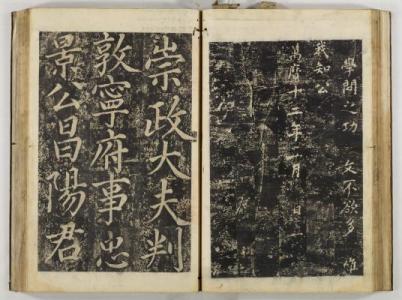 學問之功 文不欲多 惟
我知公
萬曆十二年
崇政大夫判
敦寧府事忠
景公昌陽君